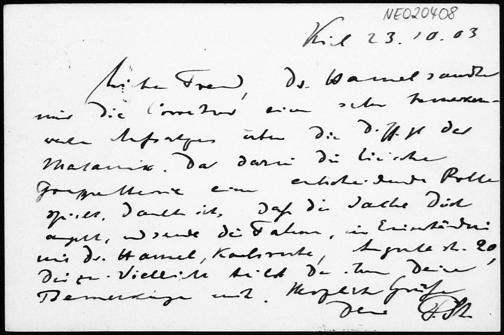 NE020408
Kiel 23.10.03
Lieber Freund, Dr. Hamel sandte
mir die Correctur eines sehr bemerkens-
werten Aufsatzes über die der
Mechanik. Da darin die Lie'sche
Gruppentheorie eine entscheidende Rolle
spielt, dachte ich, daß die Sache Dich
angeht, u sende die Fahnen, im Einverständnis
mit Dr. Hamel, Karlsruhe, Auguste str. 20,
Dir zu. Vielleicht teilst Du ihm Deine
Bemerkungen mit. Herzliche Grüße
Dein